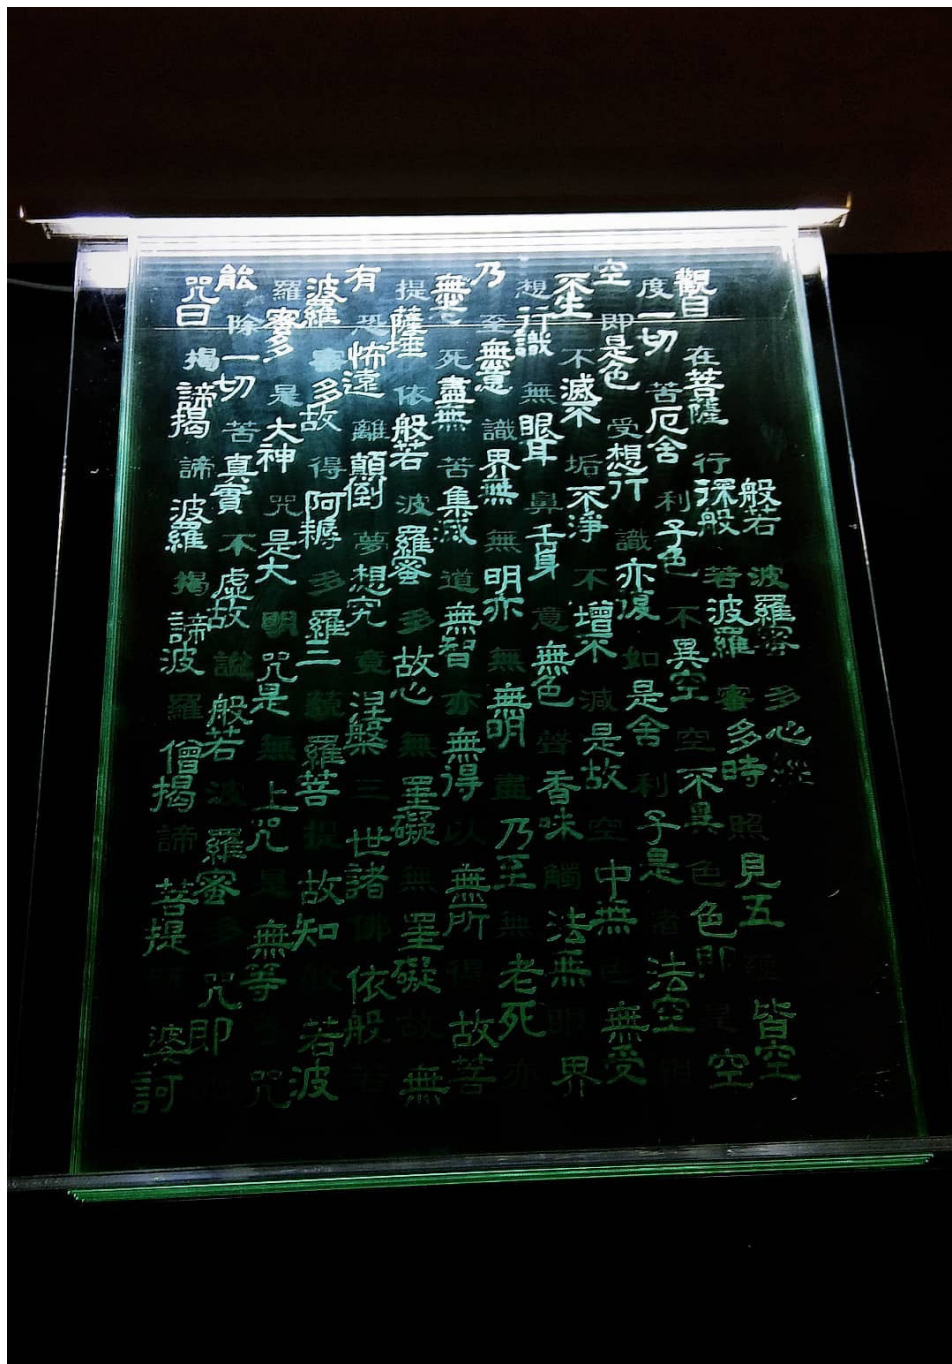 般若波羅蜜多心經
觀自在菩薩行深般若波羅蜜多時照見五蘊皆空
度一切苦厄舍利子色不異空空不異色色即是空
空即是色受想行識亦復如是舍利子是諸法空相
不生不滅不垢不淨不增不減是故空中無色無受
想行識無眼耳鼻舌身意無色聲香味觸法無眼界
乃至無意識界無無明亦無無明盡乃至無老死亦
無老死盡無苦集滅道無智亦無得以無所得故菩
提薩埵依般若波羅蜜多故心無罣礙無罣礙故無
有恐怖遠離顛倒夢想究竟涅槃三世諸佛依般若
波羅蜜多故得阿耨多羅三藐三菩提故知般若波
羅蜜多是大神咒是大明咒是無上咒是無等等咒
能除一切苦真實不虛故說般若波羅蜜多咒即說
咒曰揭諦揭諦波羅揭諦波羅僧揭諦菩提薩婆訶